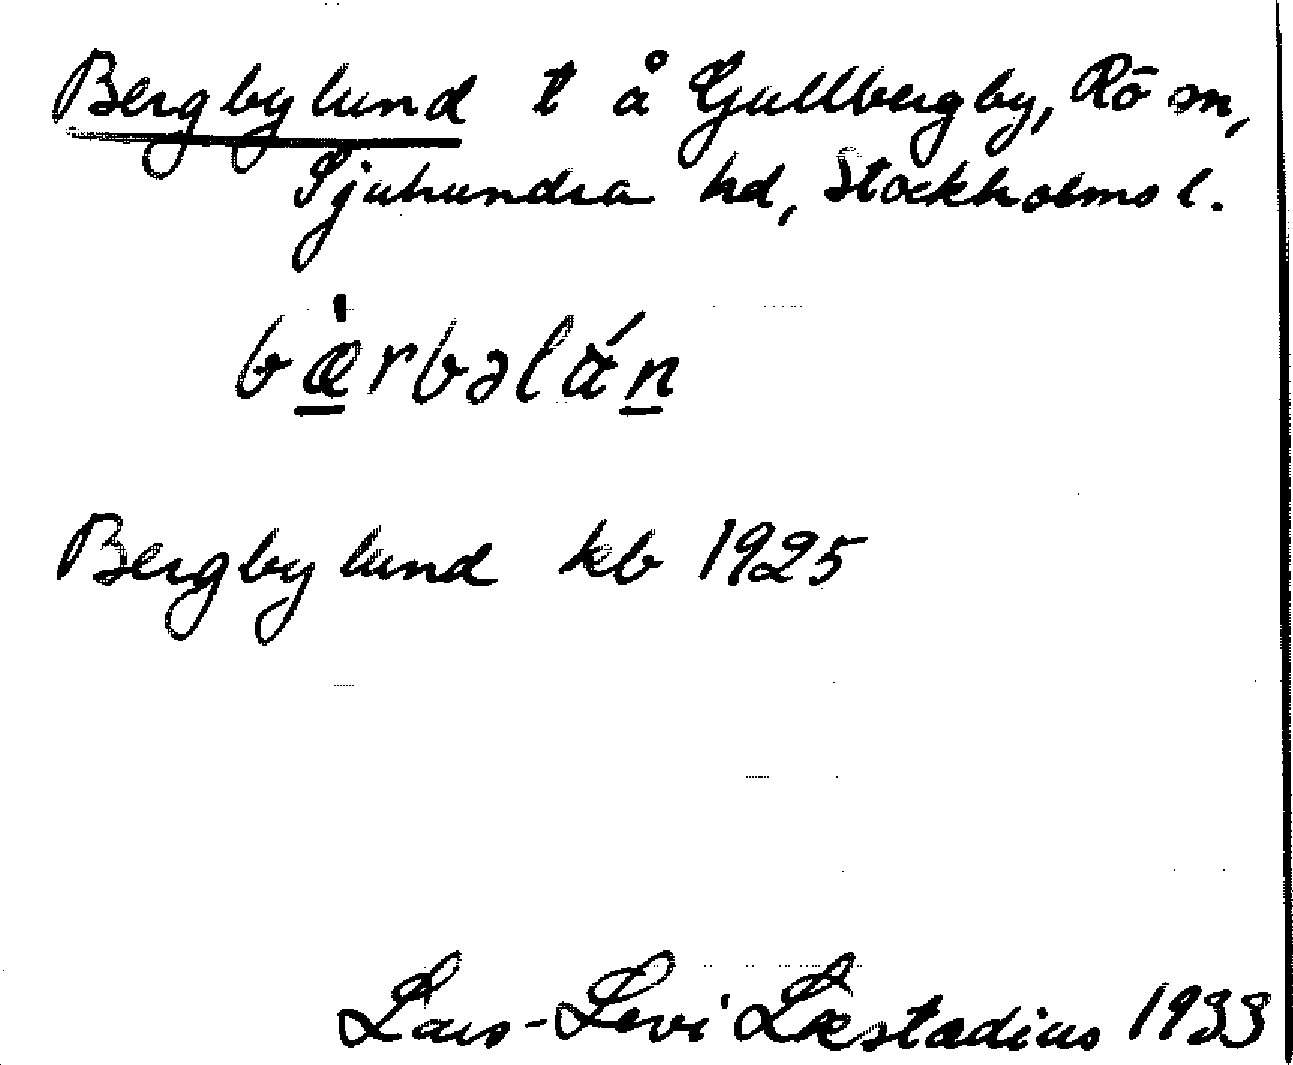 Bergbylund t å Gullbergby, Rö sn,
Sjuhundra hd, Stockholms l.
bæ̲̀rbəlán̲
Bergbylund kb 1925
Lars-Levi Læstadius 1933